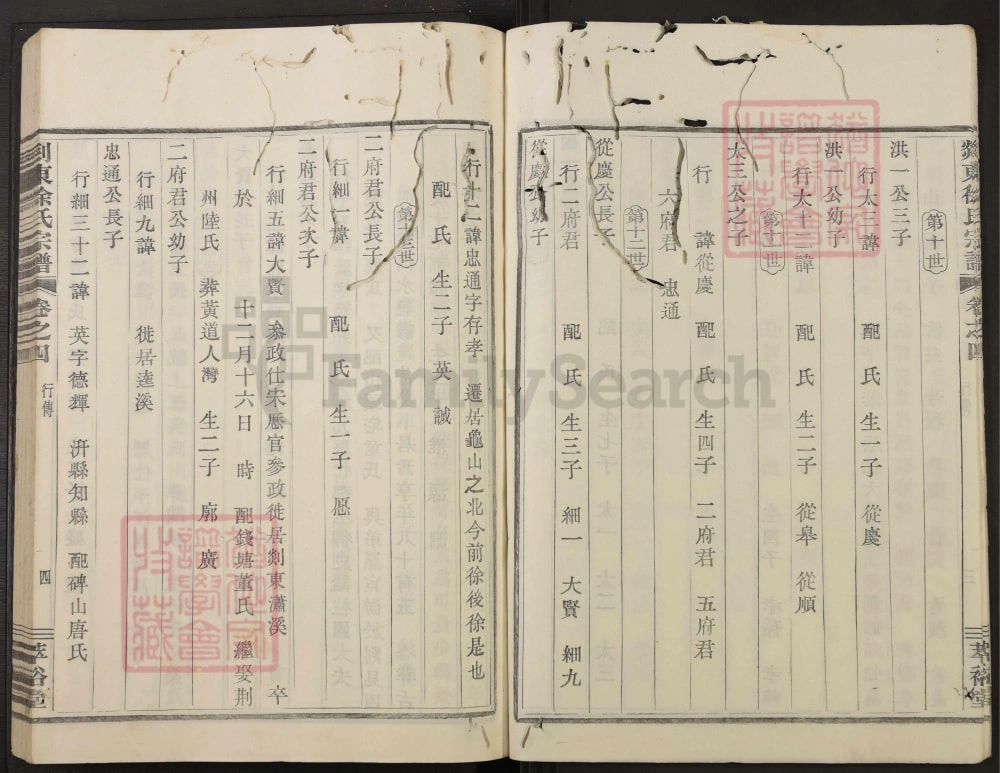 第十世
洪一公三子
行太三諱 配 氏 生一子 從慶
洪一公幼子
行太十二諱 配 氏 生二子 從皋 從順
第十一世
太三公之子
行 諱從慶 配 氏 生四子 二府君 五府君
六府君 忠通
第十二世
從慶公長子
行二府君 配 氏 生三子 細一 大賢 細九
從慶公幼子
行十二諱忠通字存孝 遷居龜山之北今前徐後徐是也
配 氏 生二子 英 誠
第十三世
二府君公長子
行細一諱 配 氏 生一子 愿
二府君公次子
行細五諱大賢 叅政仕宋歷官參政徙居剡東瀟溪 卒
於 十二月十六日 時 配錢塘董氏 繼娶荆
州陸氏 葬黃道人灣 生二子 廓 廣
二府君公幼子
行細九諱 徙居逵溪
忠通公長子
行細三十二諱 英字德輝 汧縣知縣 配碑山唐氏
剡東徐氏宗譜 卷之四 行傳 四 萃裕堂
FamilySearch